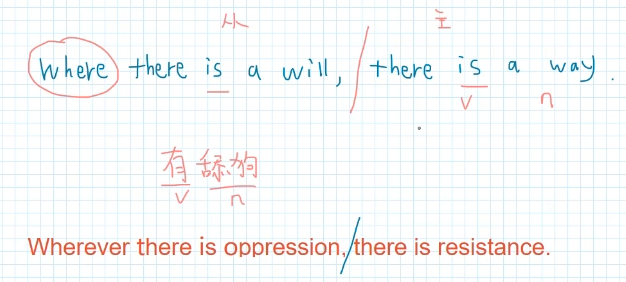 从 主
Where there is a will, there is a way.
v n
有舔狗
v n
Wherever there is oppression, there is resistance.